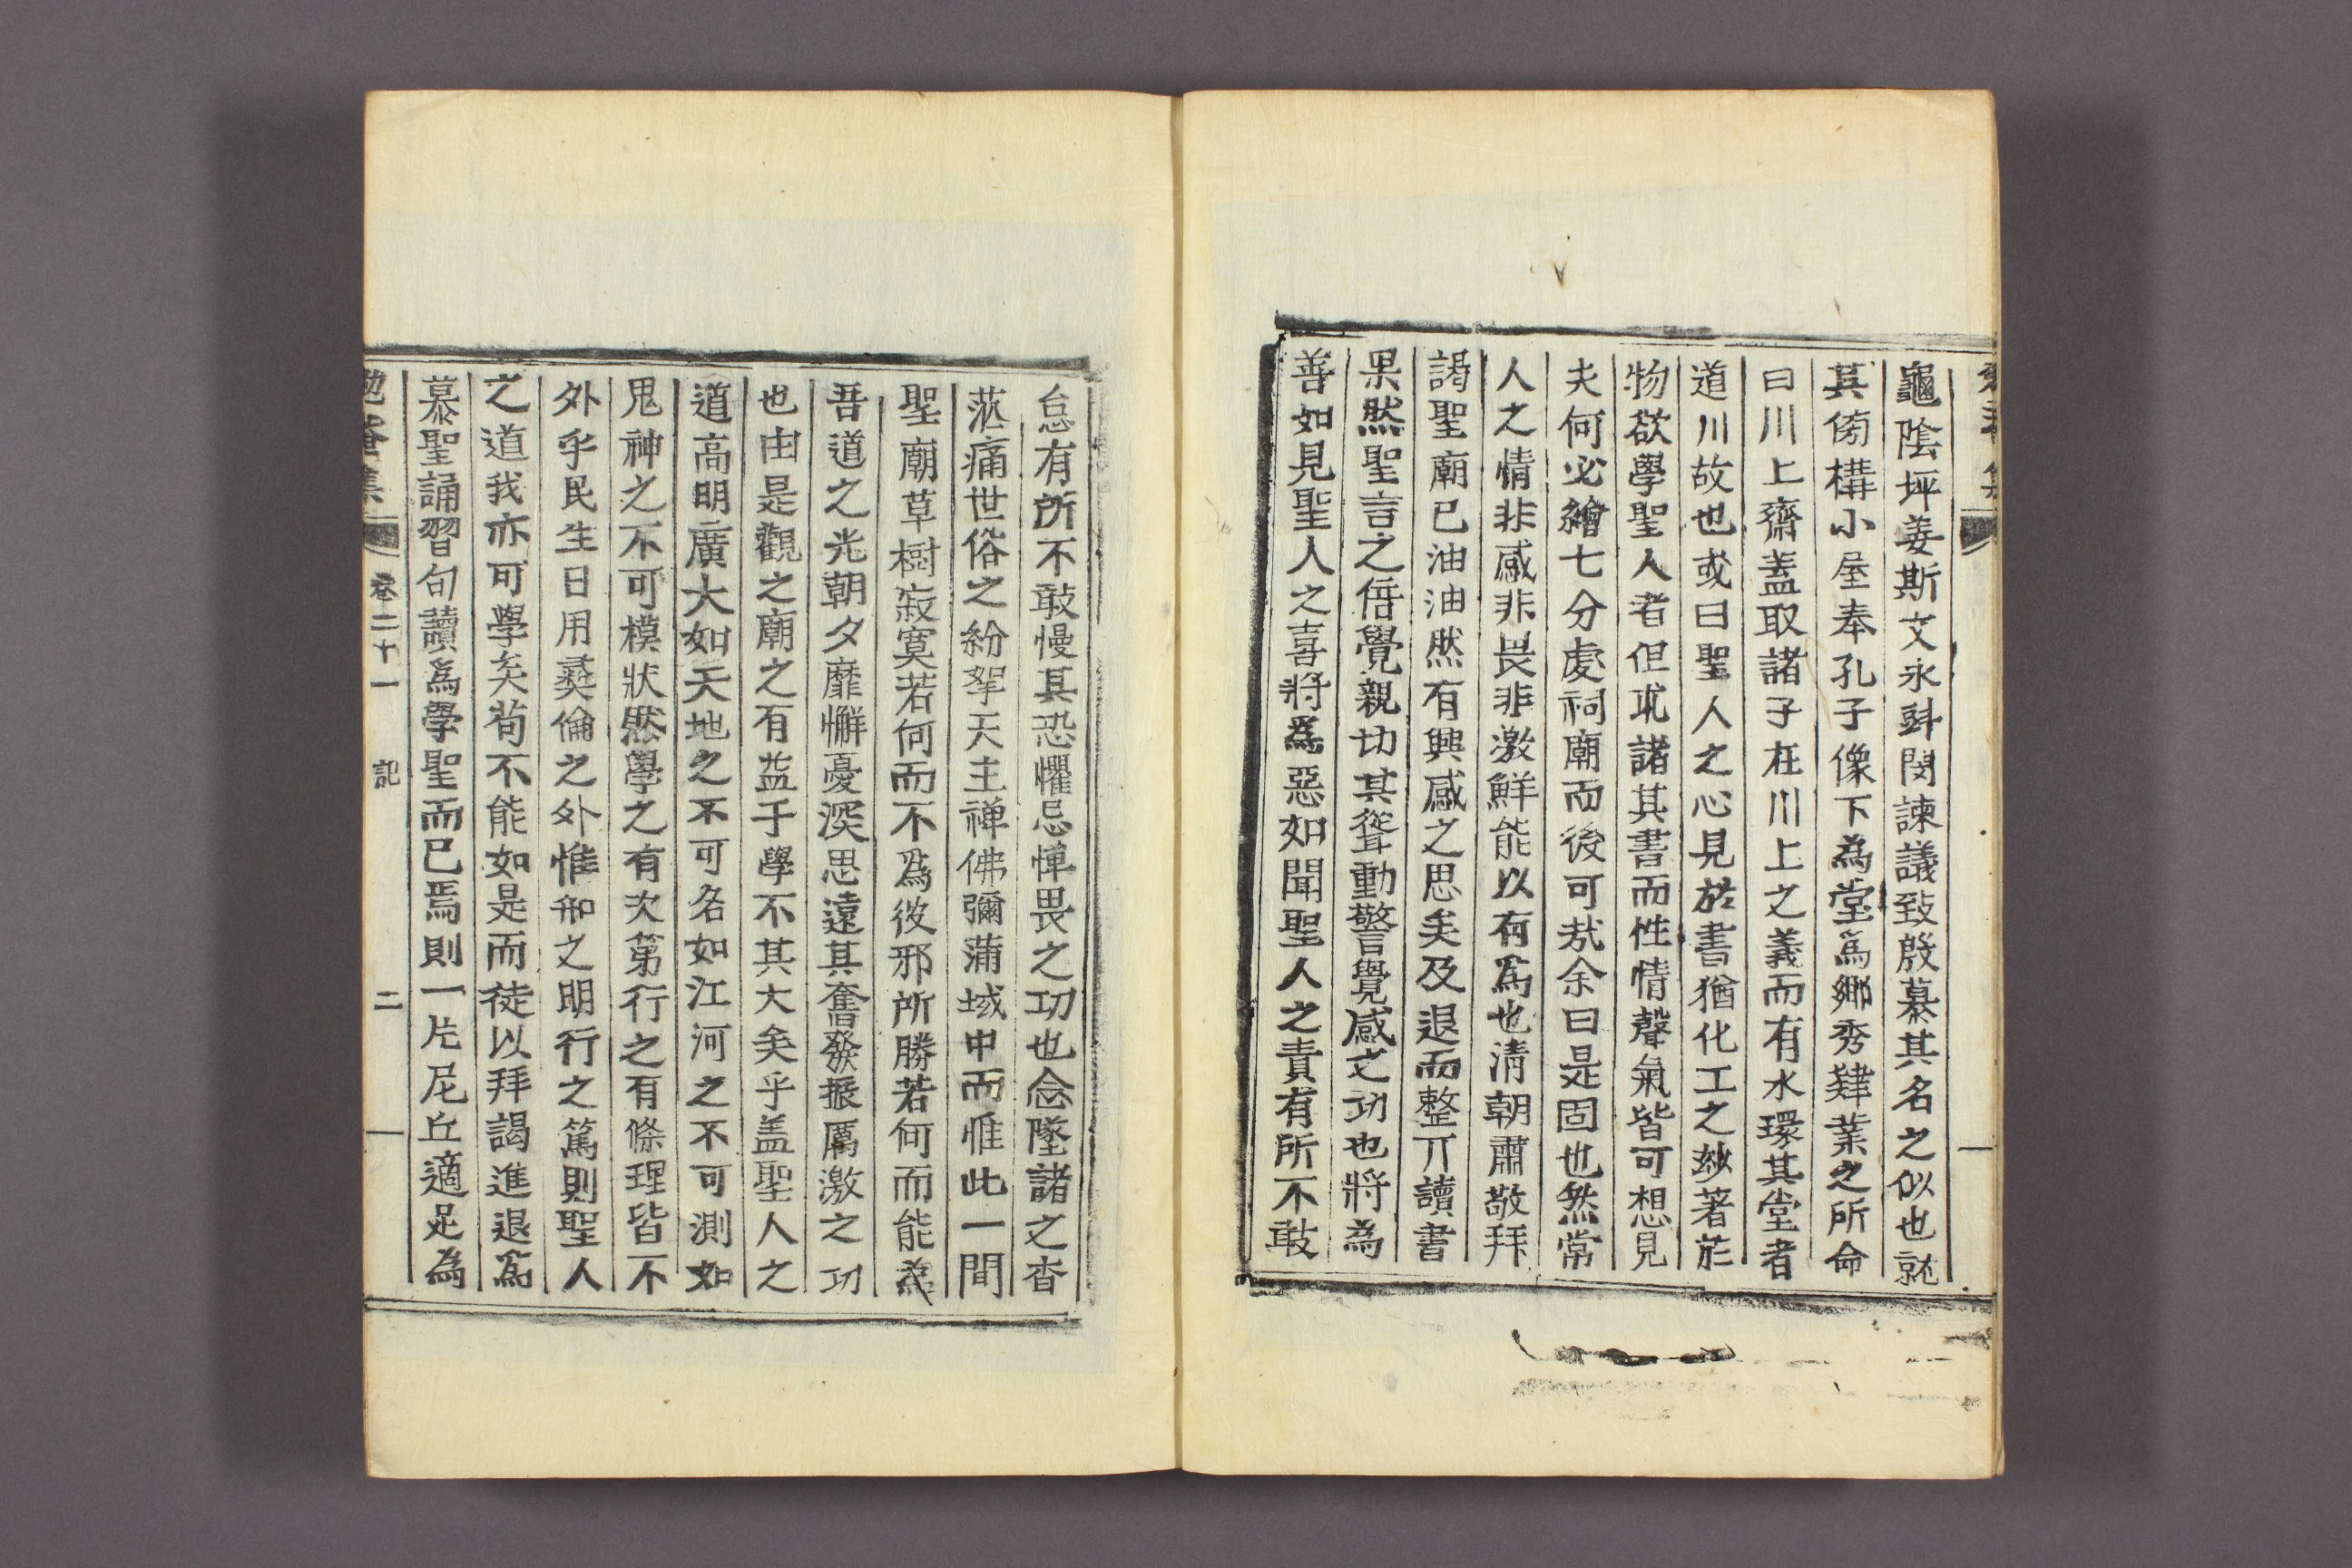 龜陰坪姜斯文永斗閔諫議致殷慕其名之似也就
其傍構小屋奉孔子像下為堂爲鄉秀肄業之所命
曰川上齋盖取諸子在川上之義而有水環其堂者
道川故也或曰聖人之心見於書猶化工之妙著於
物欲學聖人者但求諸其書而性情聲氣皆可想見
夫何必繪七分處祠廟而後可㢤余曰是固也然常
人之情非感非畏非激鮮能以有爲也清朝肅敬拜
謁聖廟已油油然有興感之思矣及退而整丌讀書
果然聖言之倍覺親切其聳動警覺感之功也將為
善如見聖人之喜將爲惡如聞聖人之責有所不敢
怠有所不敢慢其恐懼忌憚畏之功也念墜諸之杳
茫痛世俗之紛挐天主禅佛彌蒲域中而惟此一間
聖廟草樹寂寞若何而不爲彼邪所勝若何而能爲
吾道之光朝夕靡懈憂深思遠其奮發振厲激之功
也由是觀之廟之有益于學不其大矣乎盖聖人之
道高明廣大如天地之不可名如江河之不可測如
鬼神之不可模狀然學之有次第行之有條理皆不
外乎民生日用彛倫之外惟知之明行之篤則聖人
之道我亦可學矣苟不能如是而徒以拜謁進退爲
慕聖誦習句讀爲學聖而已焉則一片尼丘適足為
勉菴集 卷二十一 記 二